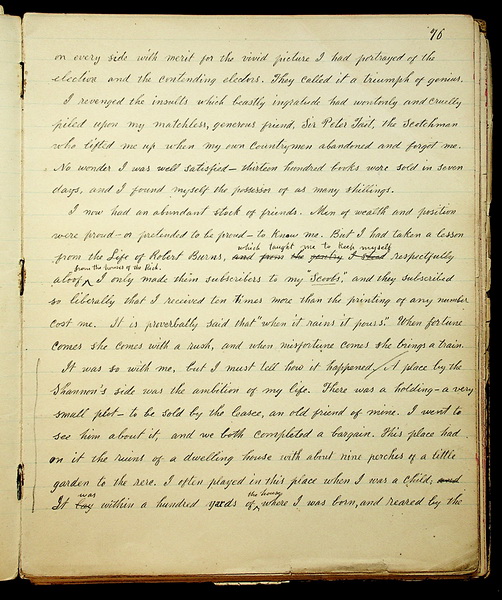 76
on every side with merit for the vivid picture I had portrayed of the
election and the contending electors. They called it a triumph of genius.
I revenged the insults which beastly ingratitude had wontonly and cruelly
piled upon my matchless, generous friend, Sir Peter Tait, the Scotchman
who lifted me up when my own countrymen abandoned and forgot me.
No wonder I was well satisfied – thirteen hundred books were sold in seven
days, and I found myself the possessor of as many shillings.
I now had an abundant stock of friends. Men of wealth and position
were proud – or pretended to be proud – to know me. But I had taken a lesson
which taught me to keep myself
from the Life of Robert Burns, and from the gentry I stood respectfully
from the homes of the Rich.
aloof I only made them subscribers to my "Scoobs", and they subscribed
so liberally that I received ten times more than the printing of any number
cost me. It is proverbally said that "when it rains it pours". When fortune
comes she comes with a rush, and when misfortune comes she brings a train.
It was so with me, but I must tell how it happened. A place by the
Shannon's side was the ambition of my life. There was a holding – a very
small plot – to be sold by the leasee, an old friend of mine. I went to
see him about it, and we both completed a bargain. This place had
on it the ruins of a dwelling house with about nine perches of a little
garden to the rere. I often played in this place when I was a child, and
was the house
It lay within a hundred yards of where I was born, and reared by the